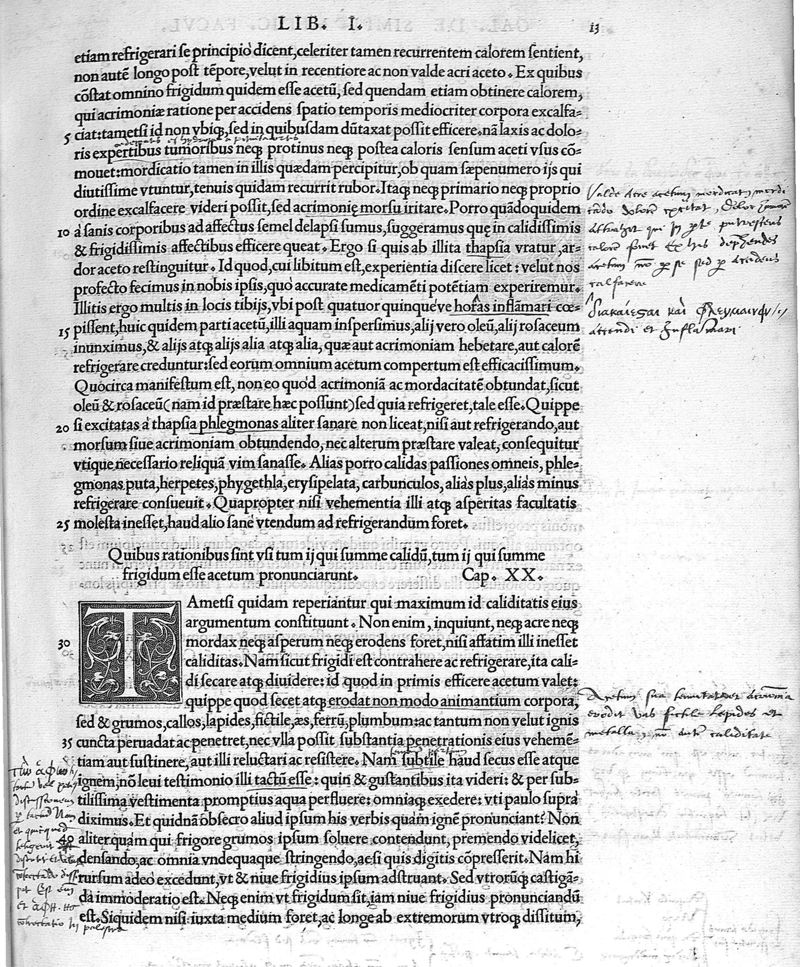 LIB. I.
13
etiam refrigerari se principiò dicent, celeriter tamen recurrentem calorem sentient,
non autẽ longo post tẽpore, velut in recentiore ac non valde acri aceto. Ex quibus
cõstat omnino frigidum quidem esse acetũ, sed quendam etiam obtinere calorem,
qui acrimoniæ ratione per accidens spatio temporis mediocriter corpora excalfa-
5 ciat: tametsi id non vbiq;, sed in quibusdam dũtaxat possit efficere. nã laxis ac dolo-
ris expertibus tumoribus neq; protinus neq; postea caloris sensum aceti vsus cõ-
mouet: mordicatio tamen in illis quædam percipitur, ob quam sæpenumero ijs qui
diutissime vtuntur, tenuis quidam recurrit rubor. Itaq; neq; primario neq; proprio
ordine excalfacere videri possit, sed acrimonię morsu iritare. Porro quãdoquidem
10 à sanis corporibus ad affectus semel delapsi sumus, suggeramus quę in calidissimis
& frigidissimis affectibus efficere queat. Ergo si quis ab illita thapsia vratur, ar-
dor aceto restinguitur. Id quod, cui libitum est, experientia discere licet: velut nos
profecto fecimus in nobis ipsis, quo accurate medicamẽti potẽtiam experiremur.
Illitis ergo multis in locis tibijs, vbi post quatuor quinquéve horas inflãmari cœ-
15 pissent, huic quidem parti acetũ, illi aquam inspersimus, alij vero oleũ, alij rosaceum
inunximus, & alijs atq; alijs alia atq; alia, quæ aut acrimoniam hebetare, aut calorẽ
refrigerare creduntur: sed eorum omnium acetum compertum est efficacissimum.
Quocirca manifestum est, non eo quòd acrimoniã ac mordacitatẽ obtundat, sicut
oleũ & rosaceũ (nam id præstare hæc possunt) sed quia refrigeret, tale esse. Quippe
20 si excitatas à thapsia phlegmonas aliter sanare non liceat, nisi aut refrigerando, aut
morsum siue acrimoniam obtundendo, nec alterum præstare valeat, consequitur
vtique necessario reliquã vim sanasse. Alias porro calidas passiones omneis, phle-
gmonas puta, herpetes, phygethla, erysipelata, carbunculos, aliàs plus, aliàs minus
refrigerare consueuit. Quapropter nisi vehementia illi atq; asperitas facultatis
25 molesta inesset, haud alio sanè vtendum ad refrigerandum foret.
Quibus rationibus sint vsi tum ij qui summe calidũ, tum ij qui summe
frigidum esse acetum pronunciarunt. Cap. XX.
TAmetsi quidam reperiantur qui maximum id caliditatis eius
argumentum constituunt. Non enim, inquiunt, neq; acre neq;
30 mordax neq; asperum neq; erodens foret, nisi affatim illi inesset
caliditas. Nam sicut frigidi est contrahere ac refrigerare, ita cali-
di secare atq; diuidere: id quod in primis efficere acetum valet:
quippe quod secet atq; erodat non modo animantium corpora,
sed & grumos, callos, lapides, fictile, æs, ferrũ, plumbum: ac tantum non velut ignis
35 cuncta peruadat ac penetret, nec vlla possit substantia penetrationis eius vehemẽ-
tiam aut sustinere, aut illi reluctari ac resistere. Nam subtile haud secus esse atque
ignem, nõ leui testimonio illi tactũ esse: quin & gustantibus ita videri: & per sub-
tilissima vestimenta promptius aqua perfluere: omniaq; exedere: vti paulo suprà
diximus. Et quidnã obsecro aliud ipsum his verbis quàm ignẽ pronunciant? Non
40 aliter quàm qui frigore grumos ipsum soluere contendunt, premendo videlicet,
densando, ac omnia vndequaque stringendo, ac si quis digitis cõpresserit. Nam hi
rursum adeo excedunt, vt & niue frigidius ipsum adstruant. Sed vtrorũq; castigã-
da immoderatio est. Neq; enim vt frigidum sit, iam niue frigidius pronunciandũ
est. Siquidem nisi iuxta medium foret, ac longe ab extremorum vtroq; dissitum,
Valde acre acetum
excitat
calfacere
διακαίεσθαι καὶ φλεγμαίνειν
accendi et inflammari
Acetum sua
erodit vas fictile lapides et
metalla
caliditate